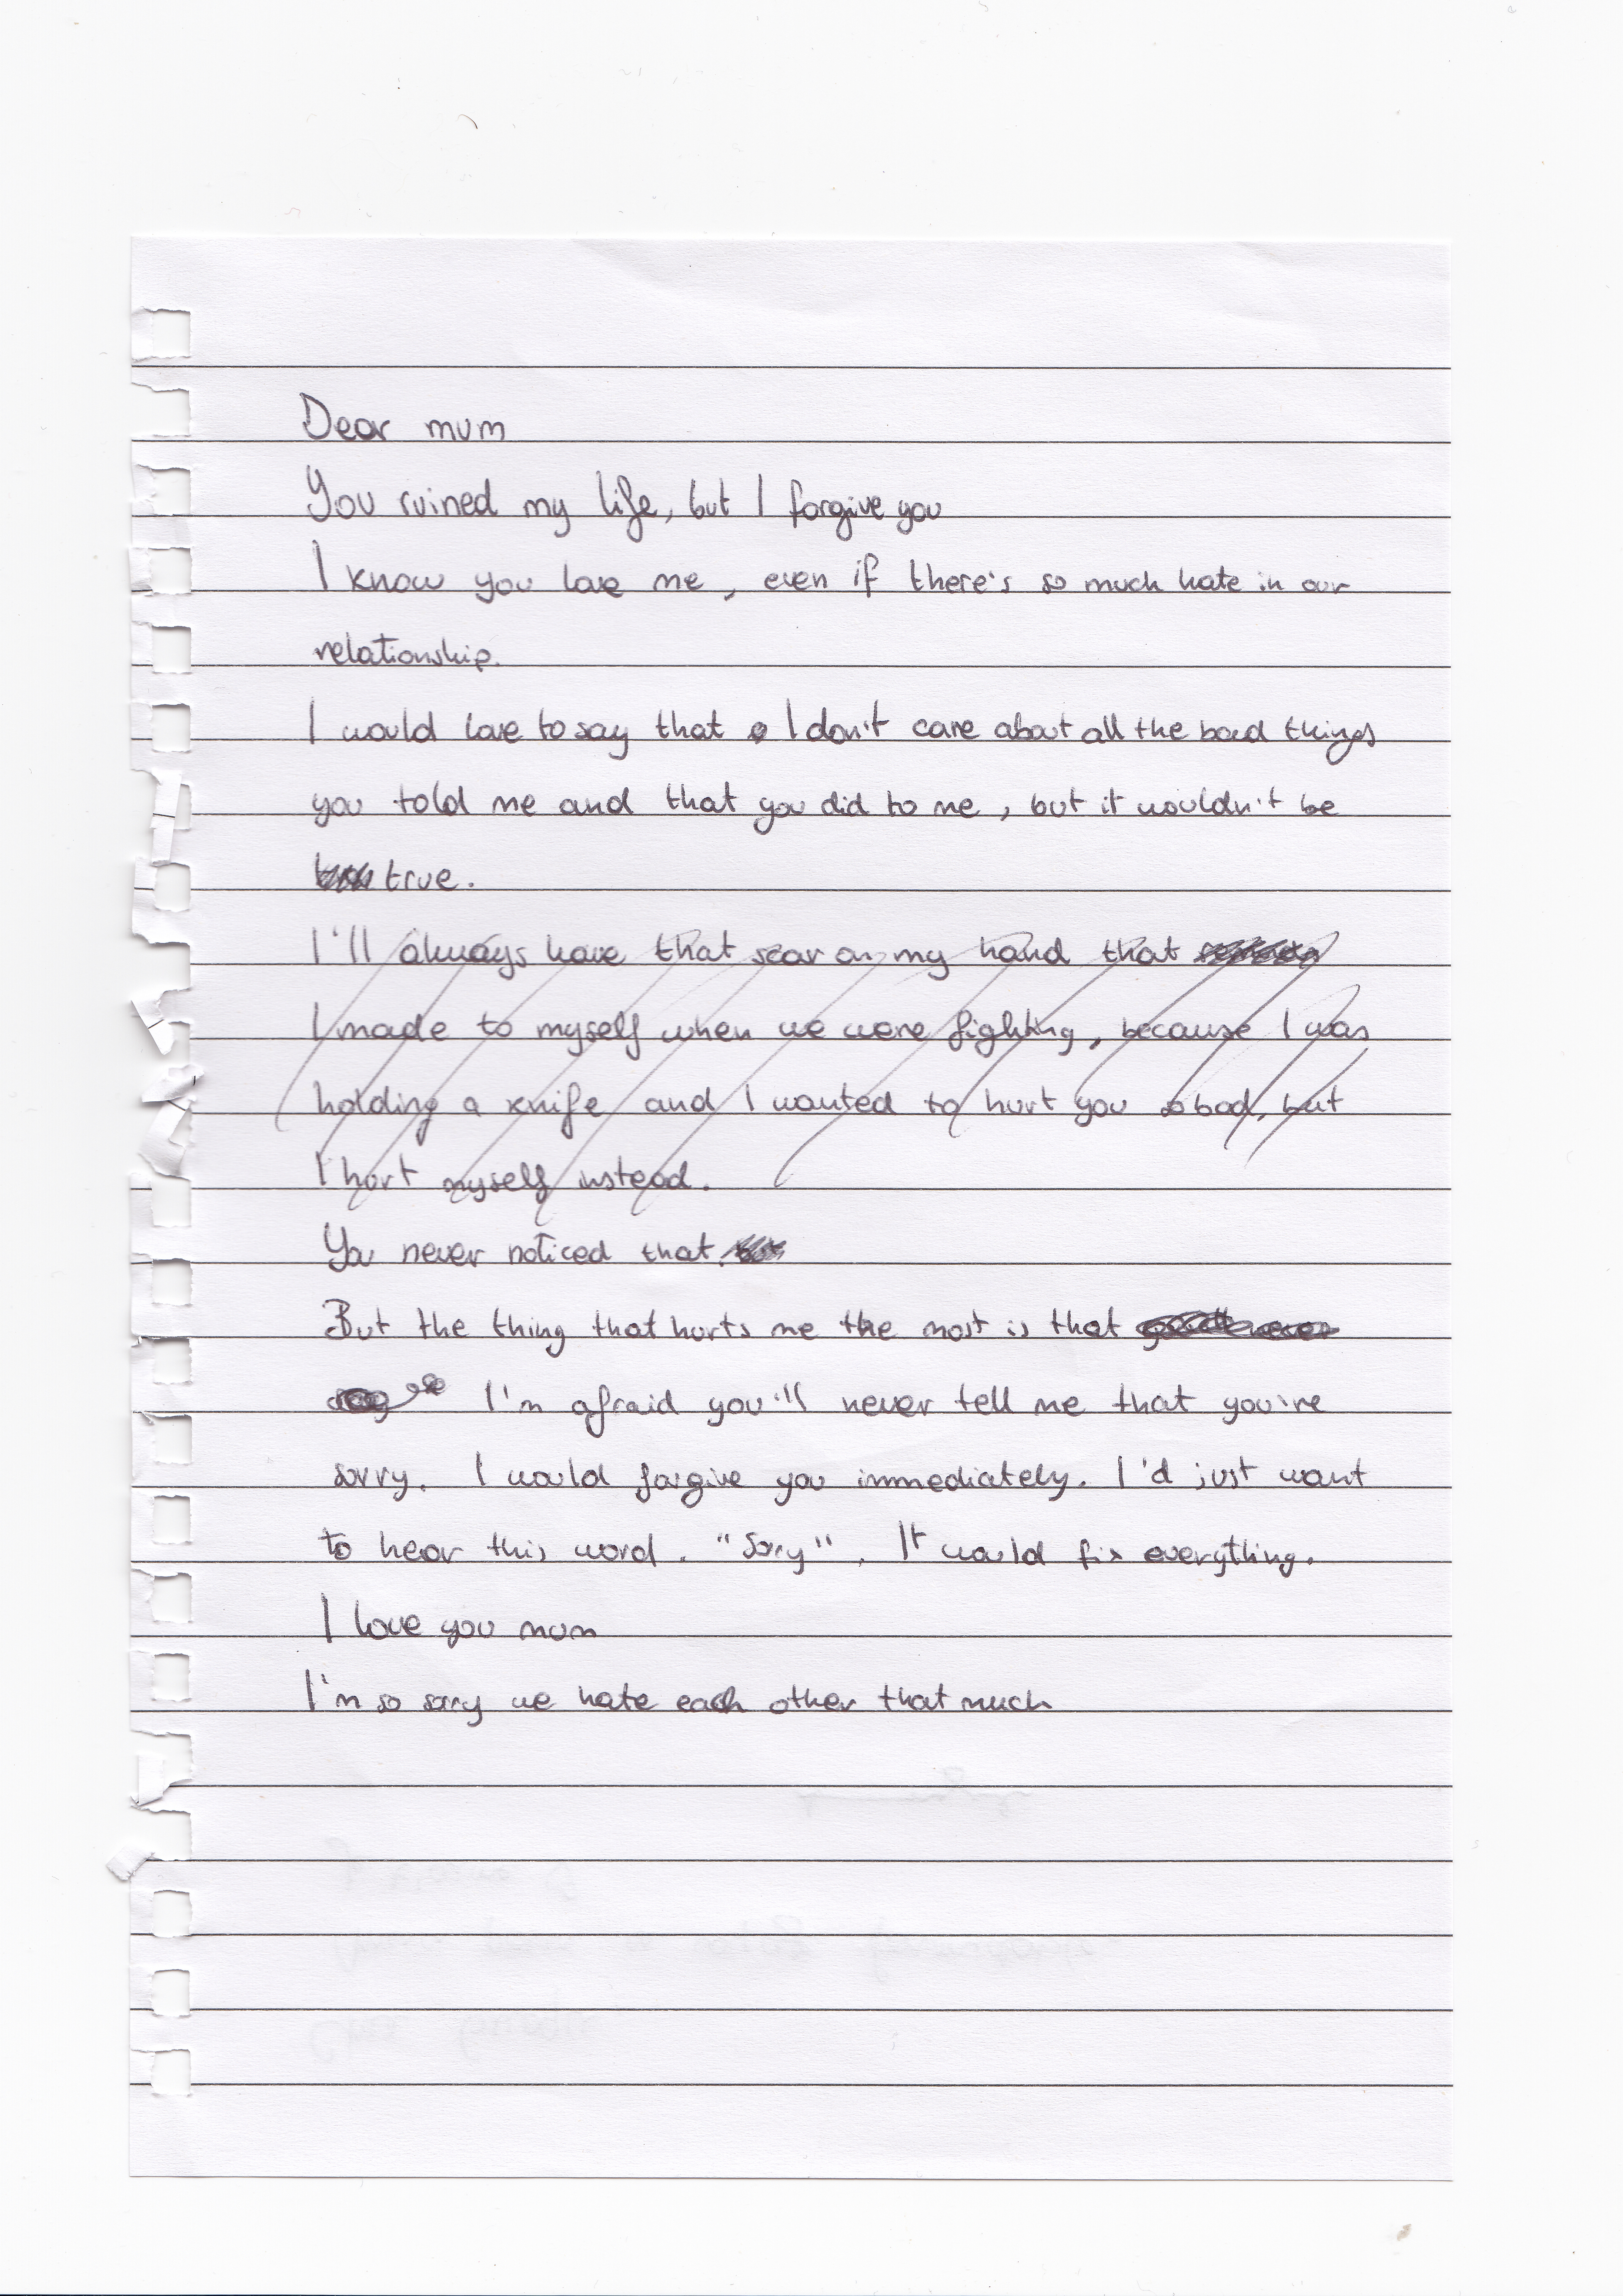 Dear mum
You ruined my life, but I forgive you
I know you love me, even if there's so much hate in our
relationship.
I would love to say that I don't care about all the bad things
you told me and that you did to me, but it wouldn't be
true.
I'll always have that scar on my hand that
I made to myself when we were fighting, because I was
holding a knife and I wanted to hurt you so bad, but
I hurt myself instead.
You never noticed that.
But the thing that hurts me the most is that
I'm afraid you'll never tell me that you're
sorry. I would forgive you immediately. I'd just want
to hear this word. "Sorry". It would fix everything.
I love you mum
I'm so sorry we hate each other that much